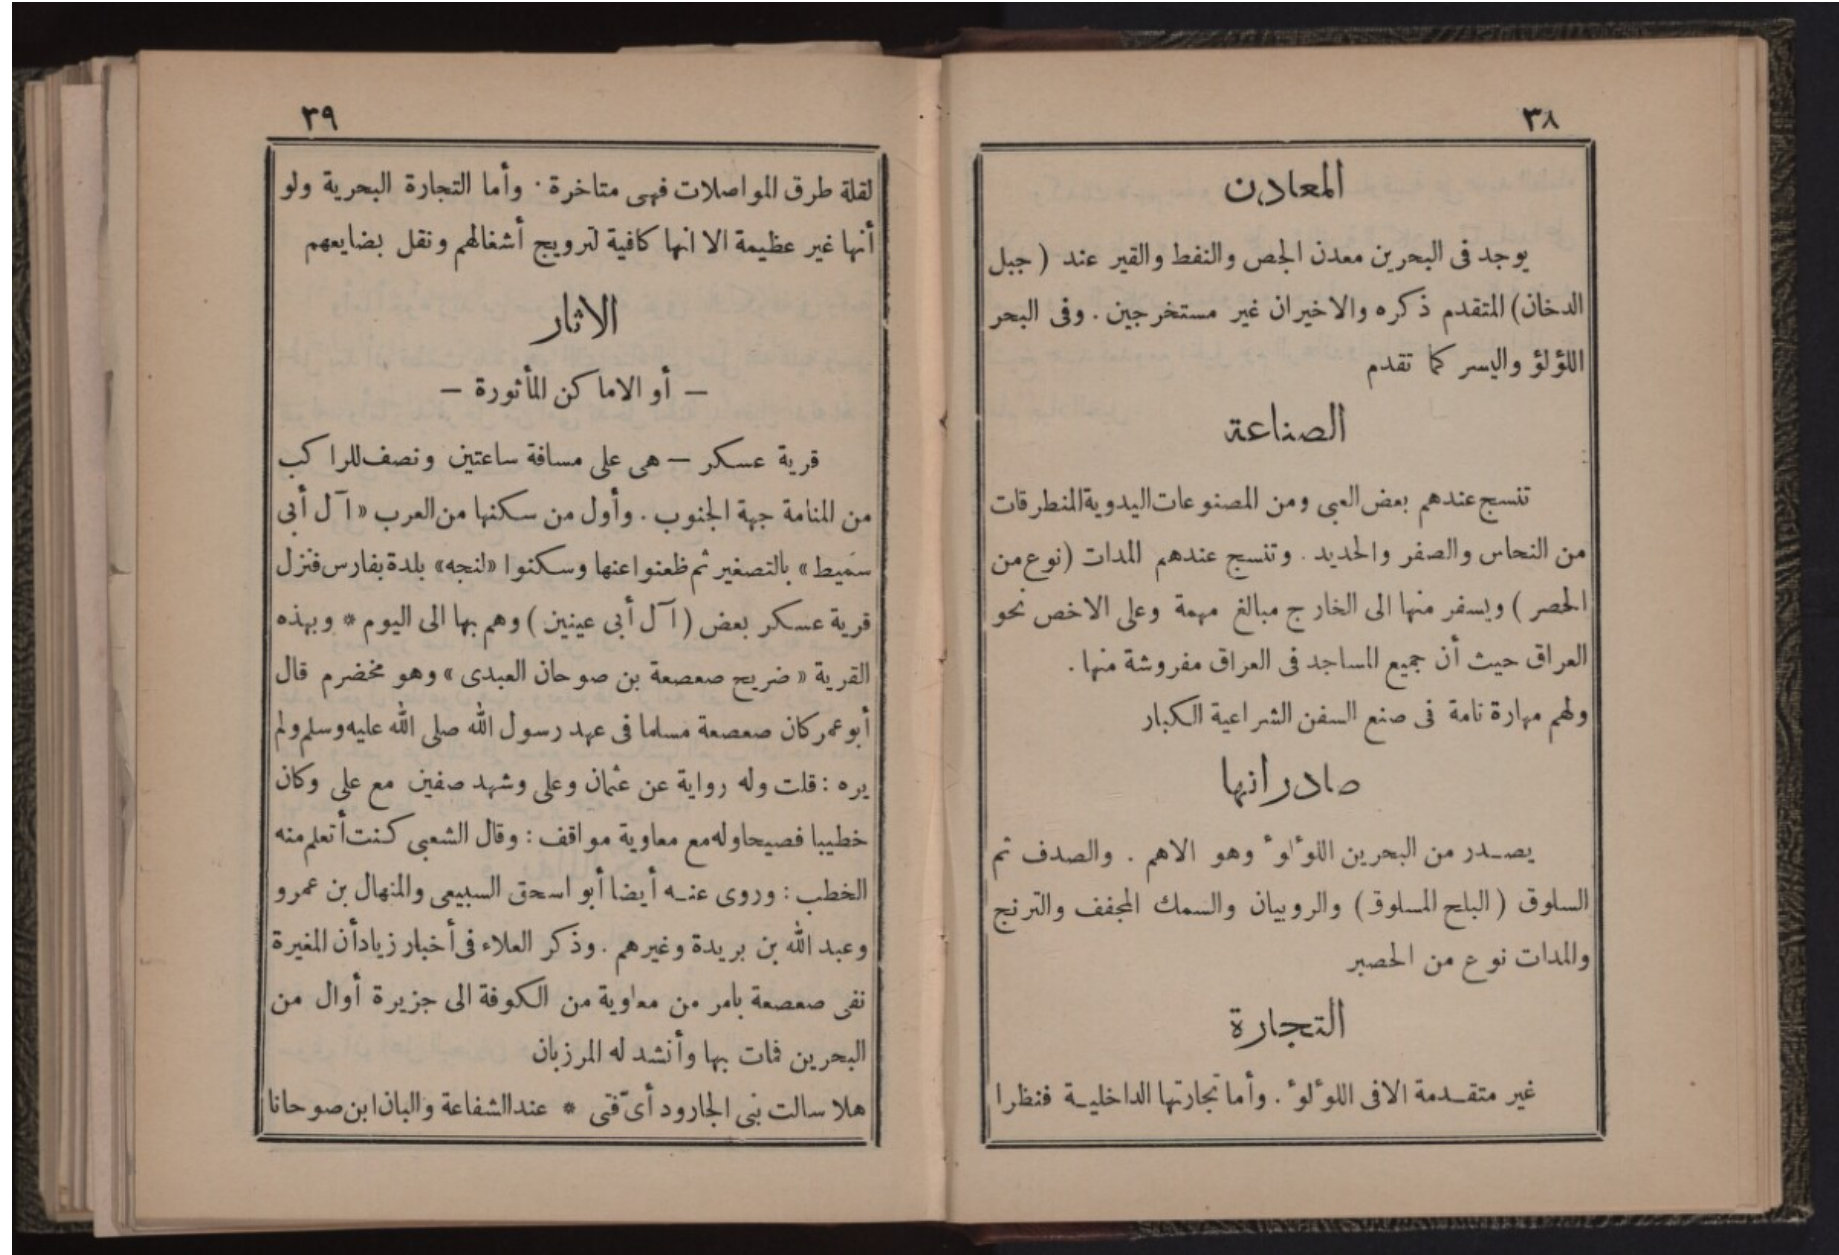 ٣٨
المعادن
يوجد فى البحرين معدن الجص والنفط والقير عند ( جبل
الدخان) المتقدم ذكره والاخيران غير مستخرجين . وفى البحر
اللؤلؤ واليسر كما تقدم
الصناعة
تنسج عندهم بعض العبى ومن المصنوعات اليدوية المنطرقات
من النحاس والصفر والحديد . وتنسج عندهم المدات (نوع من
الحصر ) ويسفر منها الى الخارج مبالغ مهمة وعلى الاخص نحو
العراق حيث أن جميع المساجد فى العراق مفروشة منها .
ولهم مهارة تامة فى صنع السفن الشراعية الكبار
صادراتها
يصدر من البحرين اللوٴلوٴ وهو الاهم . والصدف ثم
السلوق ( البلح المسلوق ) والروبيان والسمك المجفف والترنج
والمدات نوع من الحصبر
التجارة
غير متقدمة الا فى اللوٴلوٴ . وأما تجارتها الداخلية فنظرا
٣٩
لقلة طرق المواصلات فهى متاخرة . وأما التجارة البحرية ولو
أنها غير عظيمة الا انها كافية لترويج أشغالهم ونقل بضايعهم
الاثار
— أو الاماكن المأثورة —
قرية عسكر — هى على مسافة ساعتين ونصف للراكب
من المنامة جهة الجنوب . وأول من سكنها من العرب « آل أبى
سميط » بالتصغير ثم ظعنوا عنها وسكنوا «لنجه» بلدة بفارس فنزل
قرية عسكر بعض ( آل أبى عينين ) وهم بها الى اليوم * وبهذه
القرية « ضريح صعصعة بن صوحان العبدى » وهو مخضرم قال
أبو عمر كان صعصعة مسلما فى عهد رسول الله صلى الله عليه وسلم ولم
يره : قلت وله رواية عن عثمان وعلى وشهد صفين مع على وكان
خطيبا فصيحا وله مع معاوية مواقف : وقال الشعبى كنت أتعلم منه
الخطب : وروى عنه أيضا أبو اسحق السبيعى والمنهال بن عمرو
وعبد الله بن بريدة وغيرهم . وذكر العلاء فى أخبار زياد أن المغيرة
نفى صعصعة بامر من معاوية من الكوفة الى جزيرة أوال من
البحرين فمات بها وأنشد له المرزبان
هلا سالت بنى الجارود أىّ فتى * عند الشفاعة والبان ابن صوحانا